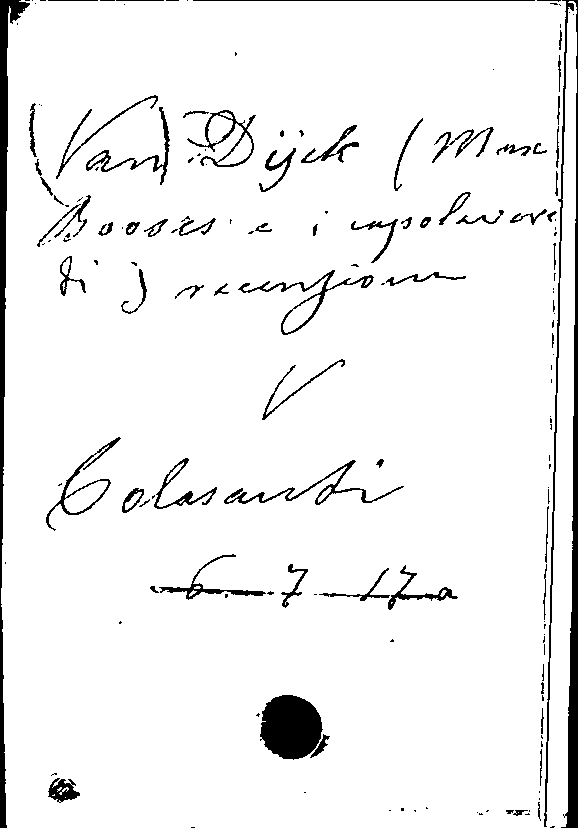 (Van) Dijck (Max
Booses e i capolavori
di) recensione
V
Colasanti
6. 7 17 a